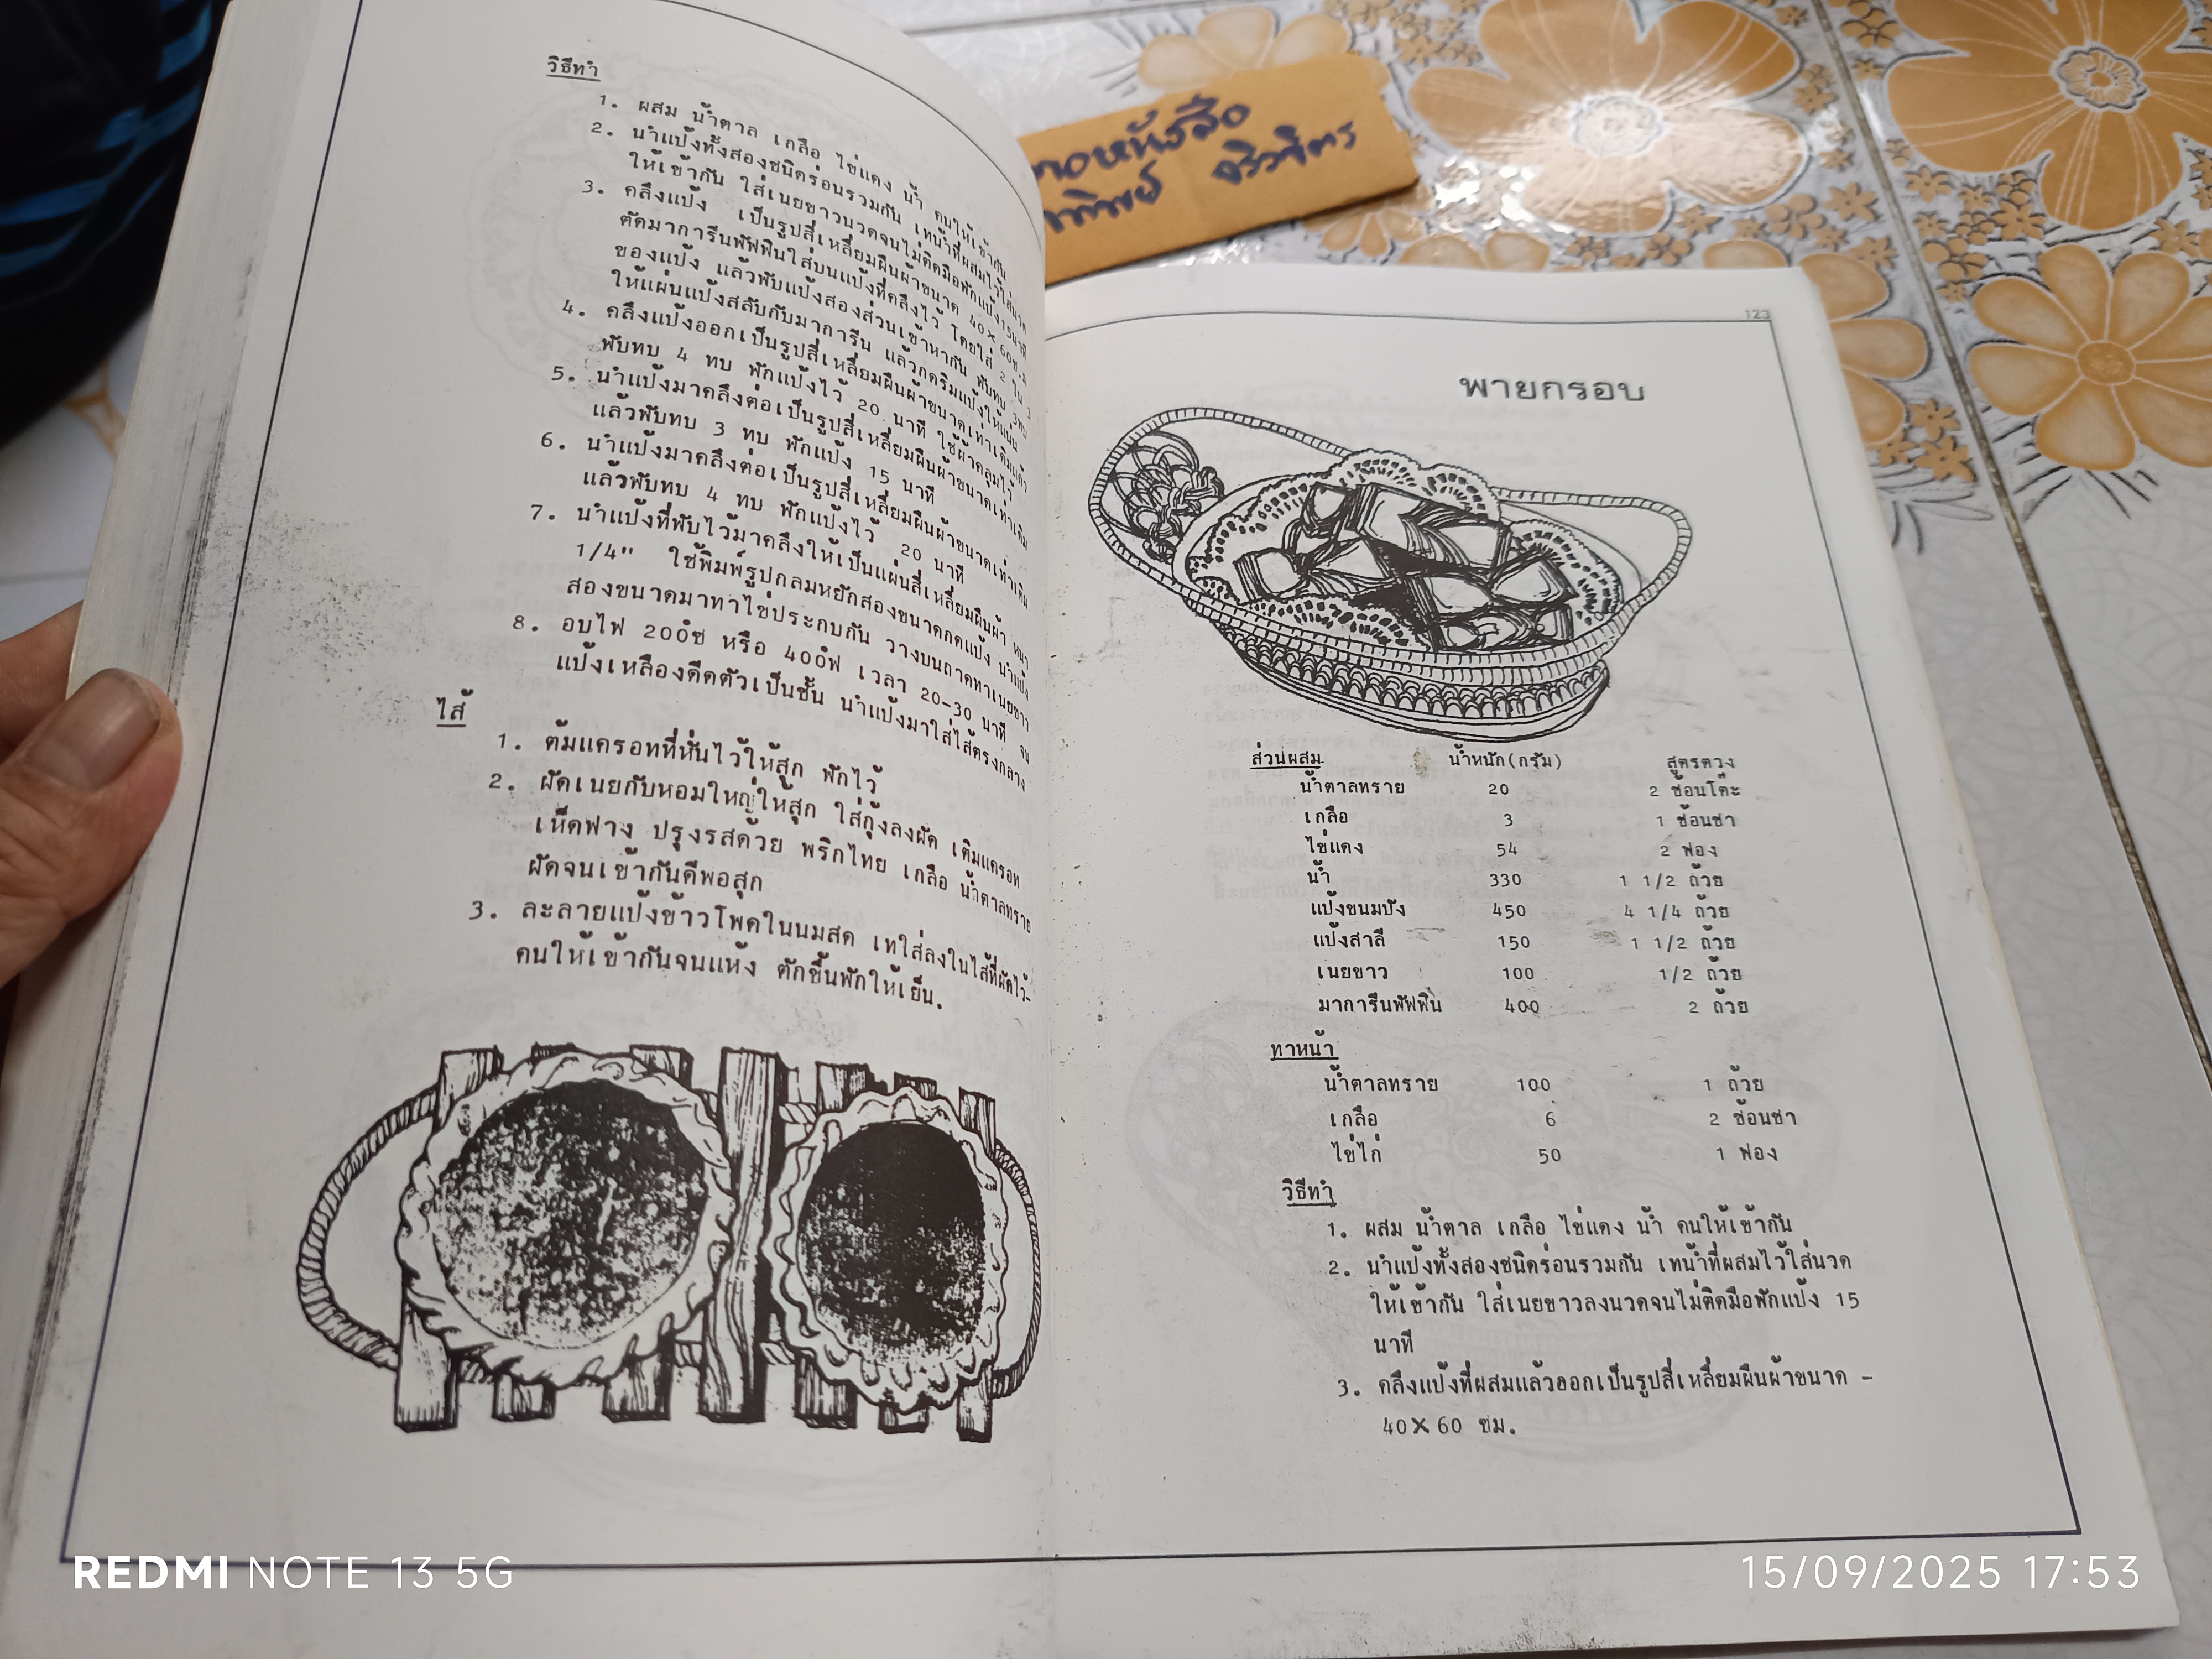 วิธีทำ
1. ผสม น้ำตาล เกลือ ไข่แดง น้ำ คนให้เข้ากัน
2. นำแป้งทั้งสองชนิดร่อนรวมกัน เทน้ำที่ผสมไว้ใส่นวด
ให้เข้ากัน ใส่เนยขาวนวดจนไม่ติดมือพักแป้ง 15นาที
3. คลึงแป้ง เป็นรูปสี่เหลี่ยมผืนผ้าขนาด 40×60ซ.ม
ตัดมาการีนพัฟฟินใส่บนแป้งที่คลึงไว้ โดยใส่ 2 ใน 3
ของแป้ง แล้วพับแป้งสองส่วนเข้าหากัน พับทบ 3ทบ
ให้แผ่นแป้งสลับกับมาการีน แล้วกดริมแป้งให้แน่น
4. คลึงแป้งออกเป็นรูปสี่เหลี่ยมผืนผ้าขนาดเท่าเดิมแล้ว
พับทบ 4 ทบ พักแป้งไว้ 20 นาที ใช้ผ้าคลุมไว้
5. นำแป้งมาคลึงต่อเป็นรูปสี่เหลี่ยมผืนผ้าขนาดเท่าเดิม
แล้วพับทบ 3 ทบ พักแป้ง 15 นาที
6. นำแป้งมาคลึงต่อเป็นรูปสี่เหลี่ยมผืนผ้าขนาดเท่าเดิม
แล้วพับทบ 4 ทบ พักแป้งไว้ 20 นาที
7. นำแป้งที่พับไว้มาคลึงให้เป็นแผ่นสี่เหลี่ยมผืนผ้า หนา
1/4" ใช้พิมพ์รูปกลมหยักสองขนาดกดแป้ง นำแป้ง
สองขนาดมาทาไข่ประกบกัน วางบนถาดทาเนยขาว
8. อบไฟ 200ํซ หรือ 400ํฟ เวลา 20-30 นาที จน
แป้งเหลืองดีดตัวเป็นชั้น นำแป้งมาใส่ไส้ตรงกลาง
ไส้
1. ต้มแครอทที่หั่นไว้ให้สุก พักไว้
2. ผัดเนยกับหอมใหญ่ให้สุก ใส่กุ้งลงผัด เติมแครอท
เห็ดฟาง ปรุงรสด้วย พริกไทย เกลือ น้ำตาลทราย
ผัดจนเข้ากันดีพอสุก
3. ละลายแป้งข้าวโพดในนมสด เทใส่ลงในไส้ที่ผัดไว้-
คนให้เข้ากันจนแห้ง ตักขึ้นพักให้เย็น.
123
พายกรอบ
ส่วนผสม น้ำหนัก(กรัม) สูตรตวง
น้ำตาลทราย 20 2 ช้อนโต๊ะ
เกลือ 3 1 ช้อนชา
ไข่แดง 54 2 ฟอง
น้ำ 330 1 1/2 ถ้วย
แป้งขนมปัง 450 4 1/4 ถ้วย
แป้งสาลี 150 1 1/2 ถ้วย
เนยขาว 100 1/2 ถ้วย
มาการีนพัฟฟิน 400 2 ถ้วย
ทาหน้า
น้ำตาลทราย 100 1 ถ้วย
เกลือ 6 2 ช้อนชา
ไข่ไก่ 50 1 ฟอง
วิธีทำ
1. ผสม น้ำตาล เกลือ ไข่แดง น้ำ คนให้เข้ากัน
2. นำแป้งทั้งสองชนิดร่อนรวมกัน เทน้ำที่ผสมไว้ใส่นวด
ให้เข้ากัน ใส่เนยขาวลงนวดจนไม่ติดมือพักแป้ง 15
นาที
3. คลึงแป้งที่ผสมแล้วออกเป็นรูปสี่เหลี่ยมผืนผ้าขนาด -
40×60 ซม.
REDMI NOTE 13 5G
15/09/2025 17:53